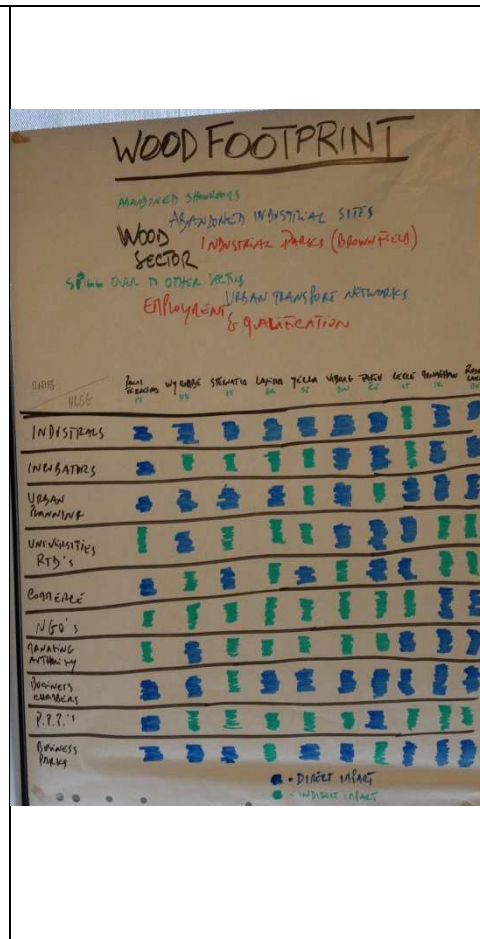 WOOD FOOTPRINT
ABANDONED SHOWROOMS
ABANDONED INDUSTRIAL SITES
WOOD SECTOR
INDUSTRIAL PARKS (BROWNFIELD)
SPILL OVER TO OTHER SECTORS
URBAN TRANSPORT NETWORKS
EMPLOYMENT & QUALIFICATION
WYCOMBE STERNATIA LAHTI YECLA LECCE MONAGHAN
INDUSTRIALS
INCUBATORS
URBAN PLANNING
UNIVERSITIES
RTD'S
COMMERCE
NGO'S
MANAGING AUTHORITY
BUSINESS CHAMBERS
P.P.P.'S
BUSINESS PARKS
- DIRECT IMPACT
- INDIRECT IMPACT